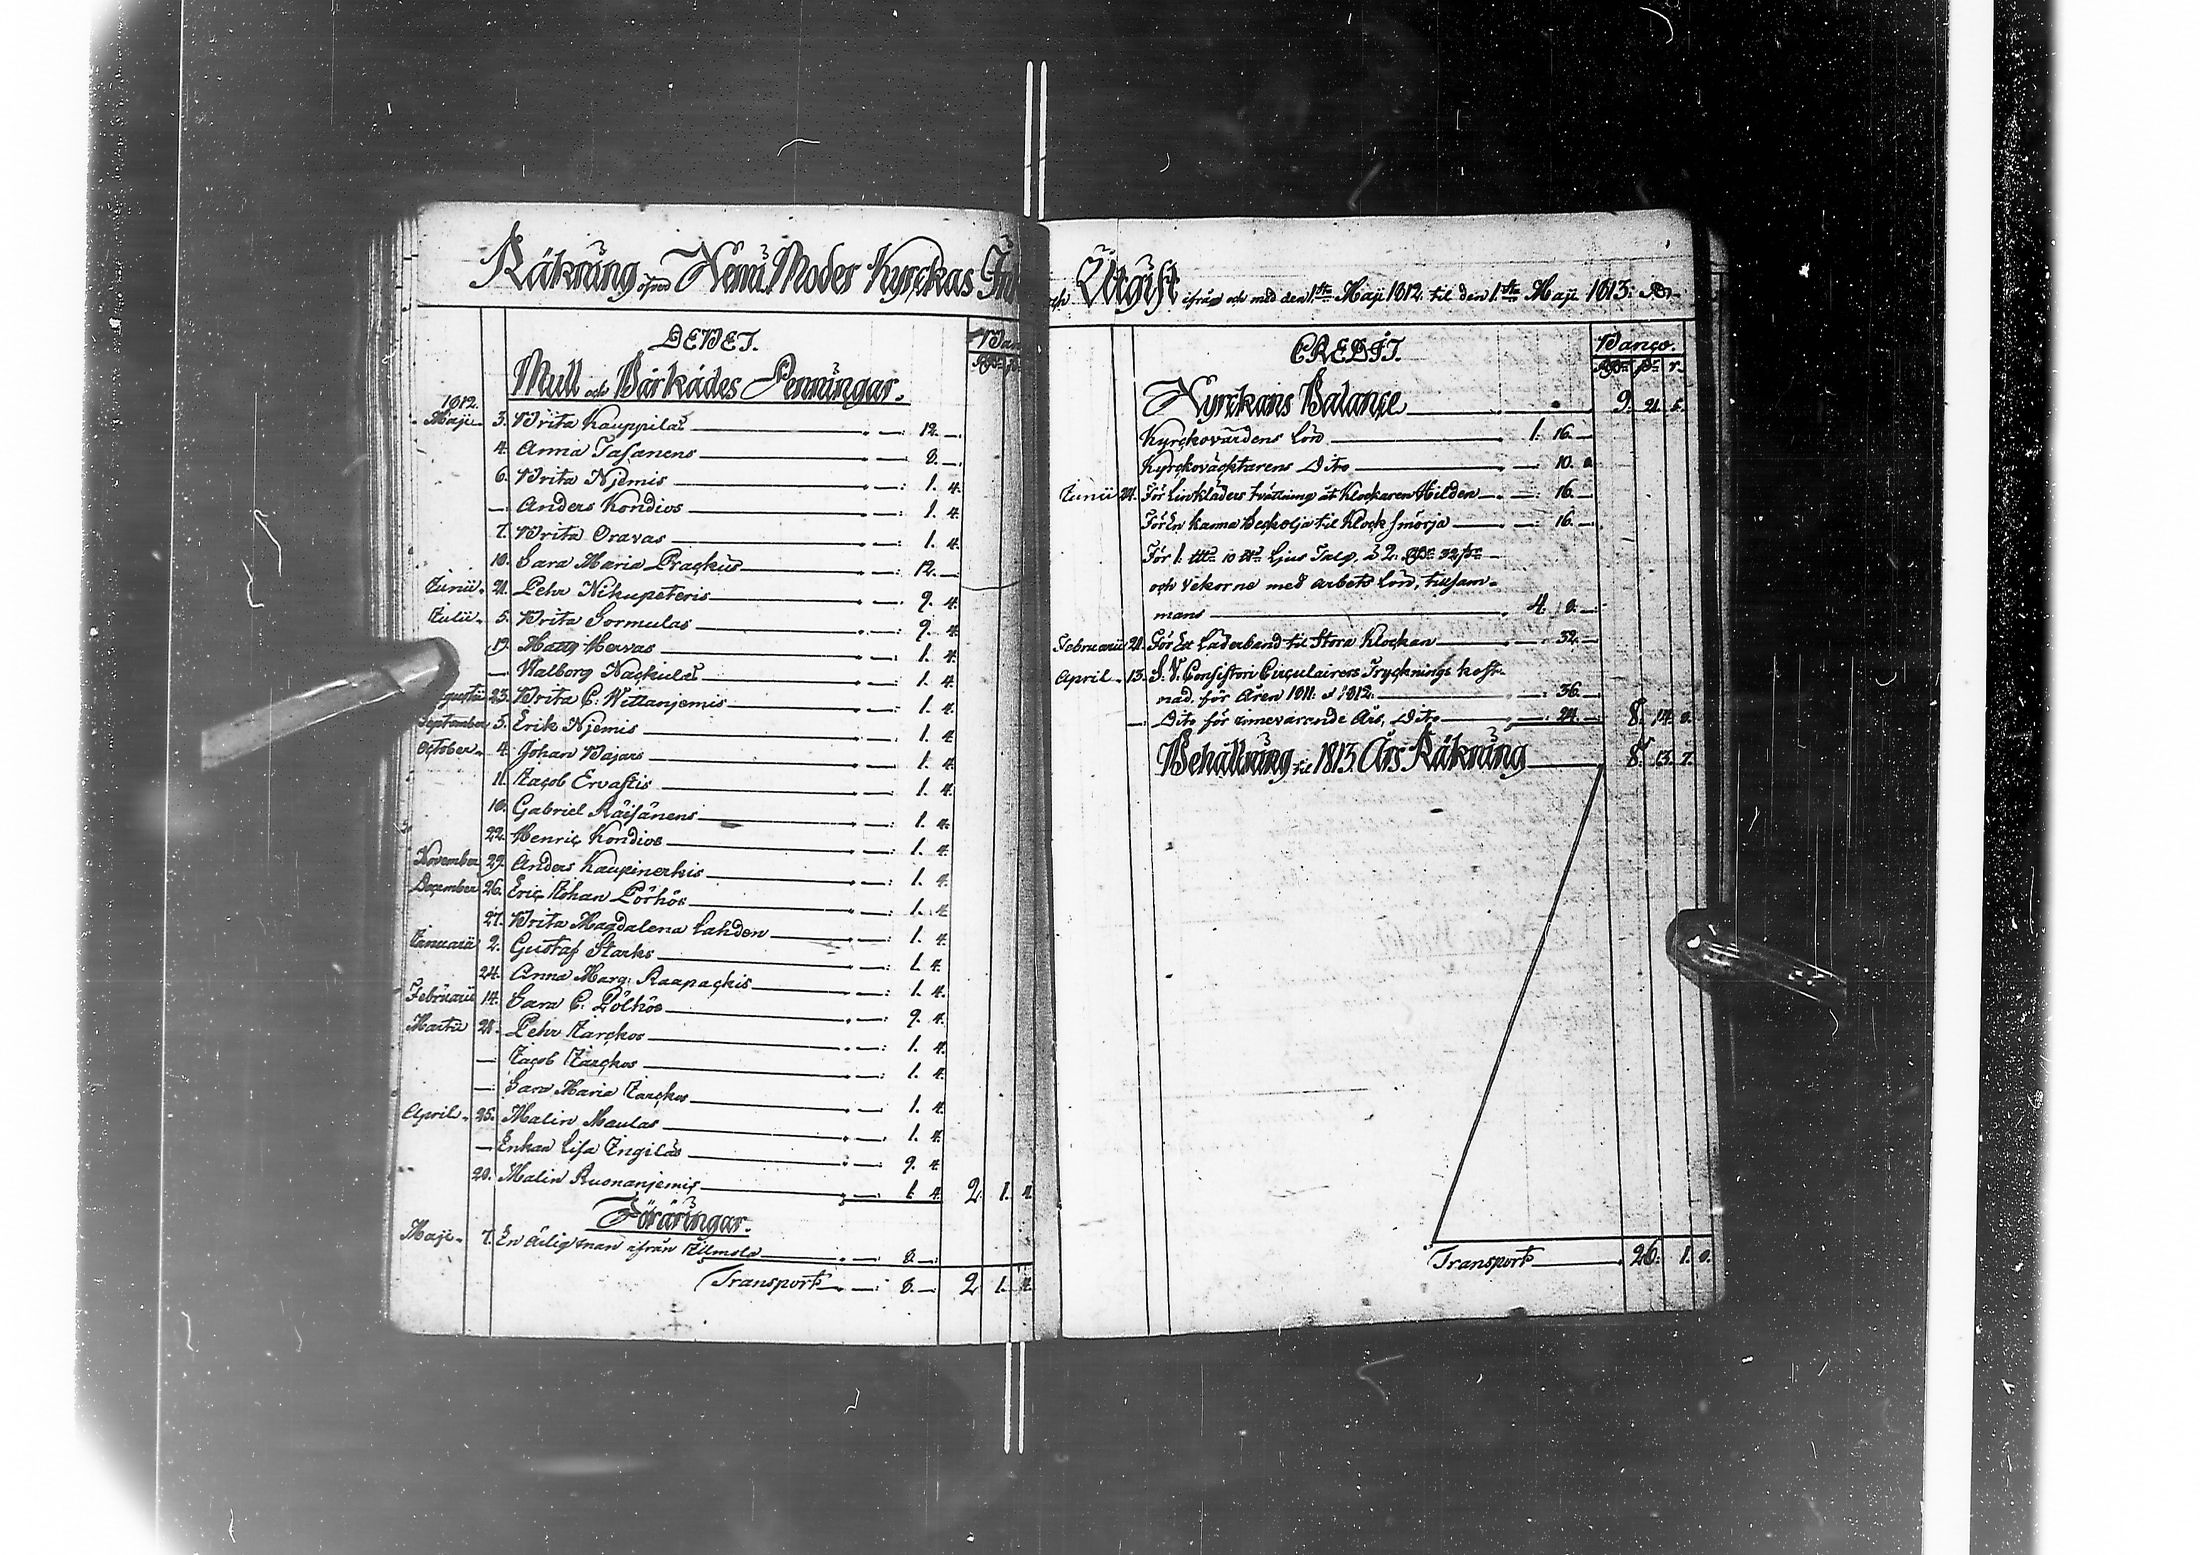 Räkning öfver Kemi Moder Kyrckas In
DEBET.
Ban
Mull och Bårkädes Penningar.
1812.
Maji. 3. Brita Kauppilas 12.
4. Anna Tasanens 8.
6. Brita Njemis 1. 4.
Anders Kondios 1. 4.
7. Brita Oravas 1. 4.
10. Sara Maria Prackus 12.
Junii. 21. Pehr Nikupeteris 9. 4.
Julii. 5. Brita Sormulas 9. 4.
19. Matty Hervas 1. 4.
Walborg Nackulas 1. 4.
gustii 23. Brita C. Wittanjemis 1. 4.
September 5. Erik Njemis 1. 4.
October. 4. Johan Vajars 1. 4.
11. Jacob Ervastis 1. 4.
18. Gabriel Räisänens 1. 4.
22. Henric Kondios 1. 4.
November 29. Anders Kaupinerkis 1. 4.
December 26. Eric Johan Pörhös 1. 4.
27. Brita Magdalena Lahden 1. 4.
Januarii 2. Gustaf Starks 1. 4.
24. Anna Marg. Raapackis 1. 4.
Februarii 14. Sara C. Pölhös 9. 4.
Martii 21. Pehr Jarckos 1. 4.
Jacob Jarckos 1. 4.
Sara Maria Jarckos 1. 4.
April. 25. Malin Maulas 1. 4.
Enkan Lisa Ingiläs 9. 4.
28. Malin Ruonanjemis 1. 4. 2. 1. 4.
Föräringar.
Maji. 7. En ärlig man ifrån Ilmola 8.
Transport 8. 2 1. 4.
ch Utgift ifrån och med den 1.sta Maji 1812. til den 1.sta Maji 1813.
CREDIT.
Banco.
Kyrckans Balance 9. 21. 5.
Kyrckovärdens Lön 1. 16.
Kyrckoväcktarens Dito 10. 8.
Junii 24. För Linkläders tvättning åt Klockaren Hilden 16.
För En kanna Beckolja til Klock smörja 16.
För 1. 10 Ljus Talg, à 2. 32
och Vekorne med arbets Lön, tilsam-
mans 4. 8.
Februarii 21. För Ett Läderband til Stora Klockan 32.
April. 13. S. V. Consistori Circulairers Trycknings kost-
nad för Åren 1811. & 1812. 36.
Dito för innevarande Års, Dito 24. 8. 14. 8.
Behållning til 1813. Års Räkning 8. 13. 7.
Transport 26. 1. 8.